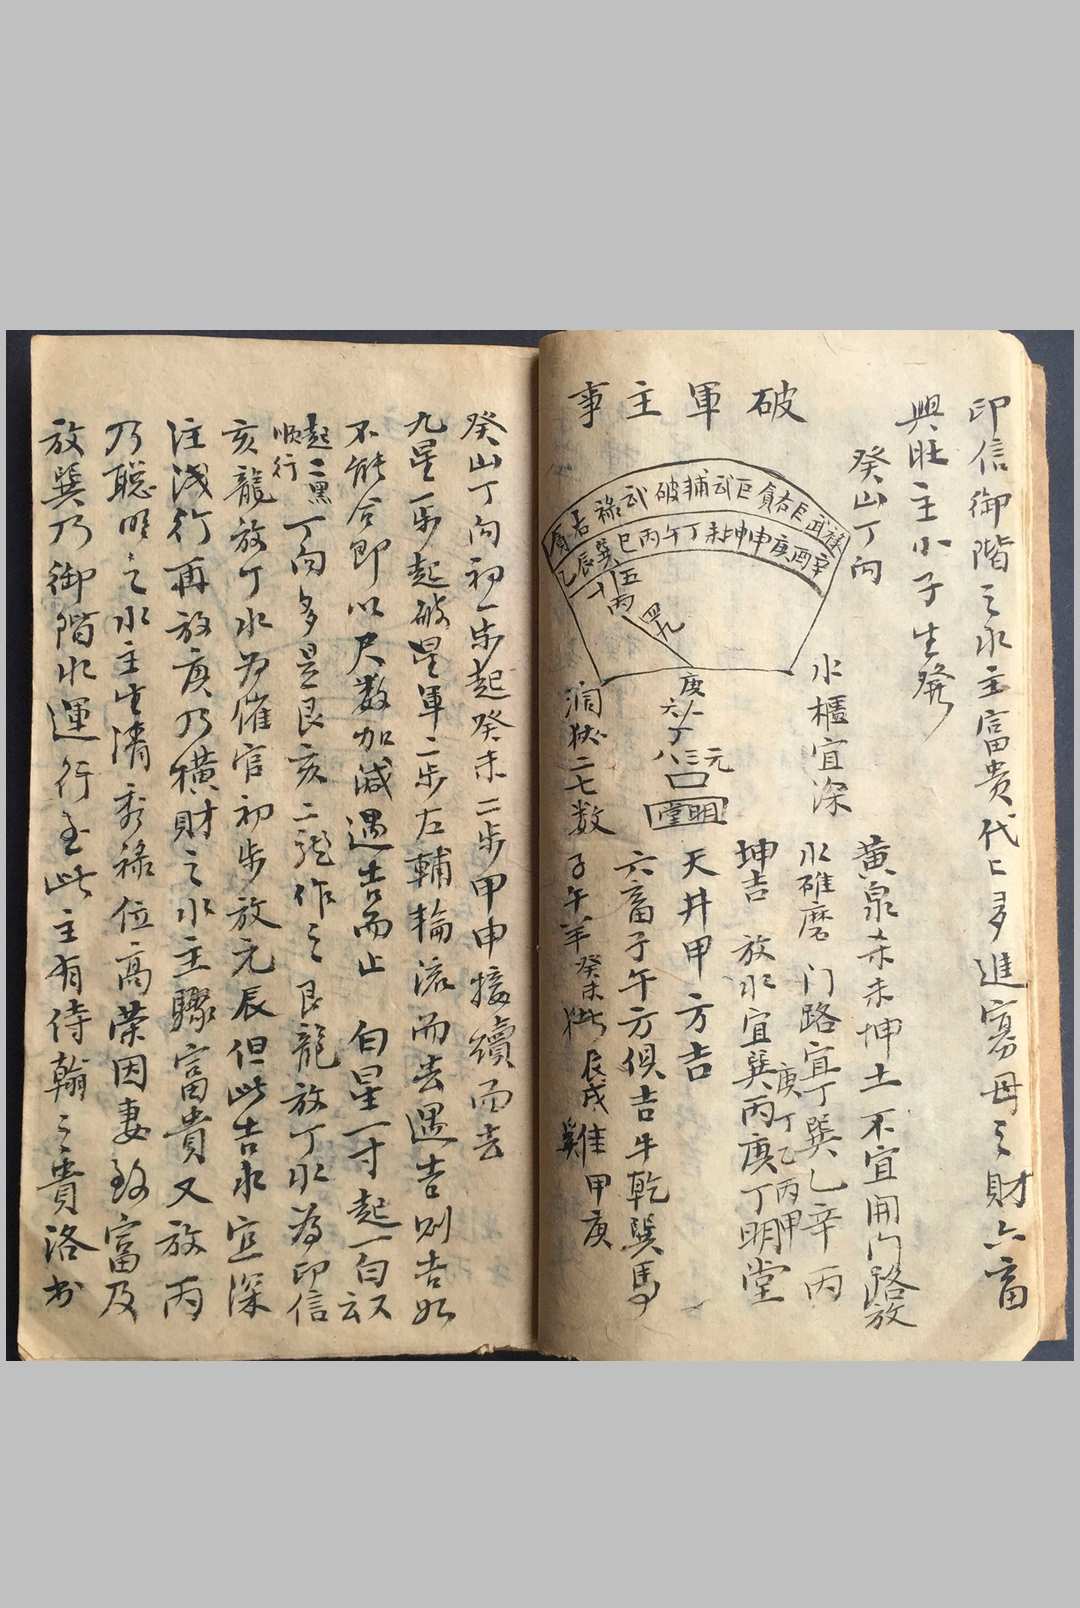 印信御階之水主富貴代〻多進寡母之財六畜
興旺主小子生發
癸山丁向
破軍主事
貪 祿武破輔武巨貪右巨武祿
乙辰巽巳丙午丁未坤申庚酉辛
十五丙
四九
庚
六一
丁
八三元
口
明堂
水櫃宜深
黃泉未坤土不宜開门路放
水碓磨 门路宜丁巽乙辛丙
庚丁乙丙甲
坤吉 放水宜巽丙庚丁明堂
天井甲方吉
六畜子午方俱吉牛乾巽馬
二七数 子午羊癸未 辰戌雞甲庚
癸山丁向初一步起癸未二步甲申接續而去
九星一步起破星軍二步左輔輪流而去遇吉则吉如
不能合即以尺数加減遇吉而止 白星一寸起一白二尺
起二黑順行
丁向多是艮亥二龍作之艮龍放丁水為印信
亥龍放丁水为催官初步放元辰但此吉水宜深
注淺行再放庚乃横財之水主驟富貴又放丙
乃聪明之水主生清秀禄位高荣因妻致富及
放巽乃御階水運行至此主有侍翰之貴洛书